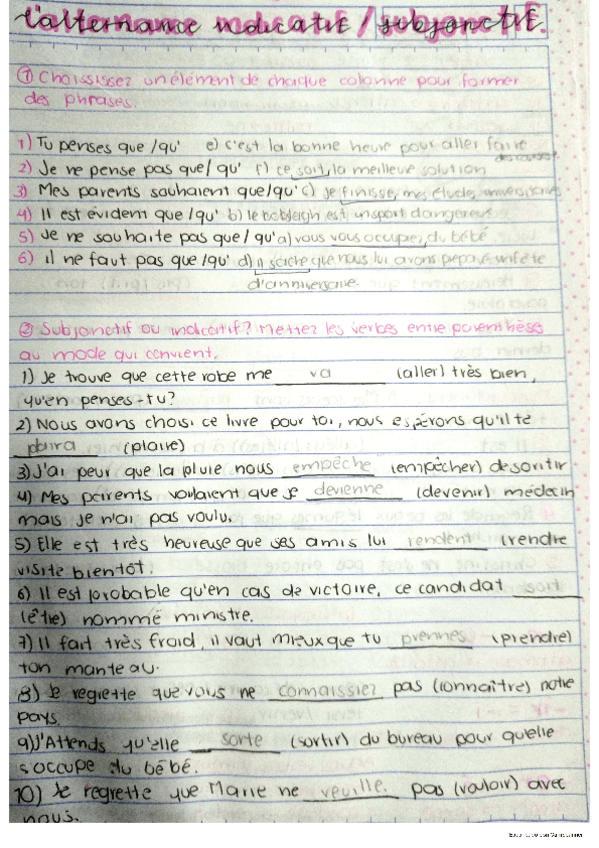 L'alternance indicatif / subjonctif.
① Choississez un élément de chaque colonne pour former
des phrases.
1) Tu penses que /qu' e) c'est la bonne heure pour aller faire
2) Je ne pense pas que/qu' f) ce soit la meilleure solution
3) Mes parents souhaient que/qu' c) je finisse, mes étude,
4) Il est évident que /qu' b) le bobsleigh est un sport dangereux
5) Je ne souhaite pas que/qu' a) vous vous occupez, du bébé
6) il ne faut pas que /qu' d) il sache que nous lui avons
d'anniversaire.
② Subjonctif ou indicatif? Mettez les verbes entre parenthèses
au mode qui convient.
1) Je trouve que cette robe me va (aller) très bien,
qu'en penses-tu?
2) Nous avons choisi ce livre pour toi, nous espérons qu'il te
plaira (plaire)
3) J'ai peur que la pluie nous empêche (empêcher) de sortir
4) Mes parents voulaient que je devienne (devenir) médecin
mais je n'ai pas voulu.
5) Elle est très heureuse que ses amis lui rendent (rendre
visite bientôt.
6) Il est probable qu'en cas de victoire, ce candidat soit
(être) nommé ministre.
7) Il fait très froid, il vaut mieux que tu prennes (prendre)
ton manteau.
8) Je regrette que vous ne connaissiez pas (connaître) notre
pays.
9) J'Attends qu'elle sorte (sortir) du bureau pour quelle
s'occupe du bébé.
10) Je regrette que Marie ne veuille pas (vouloir) avec
nous.